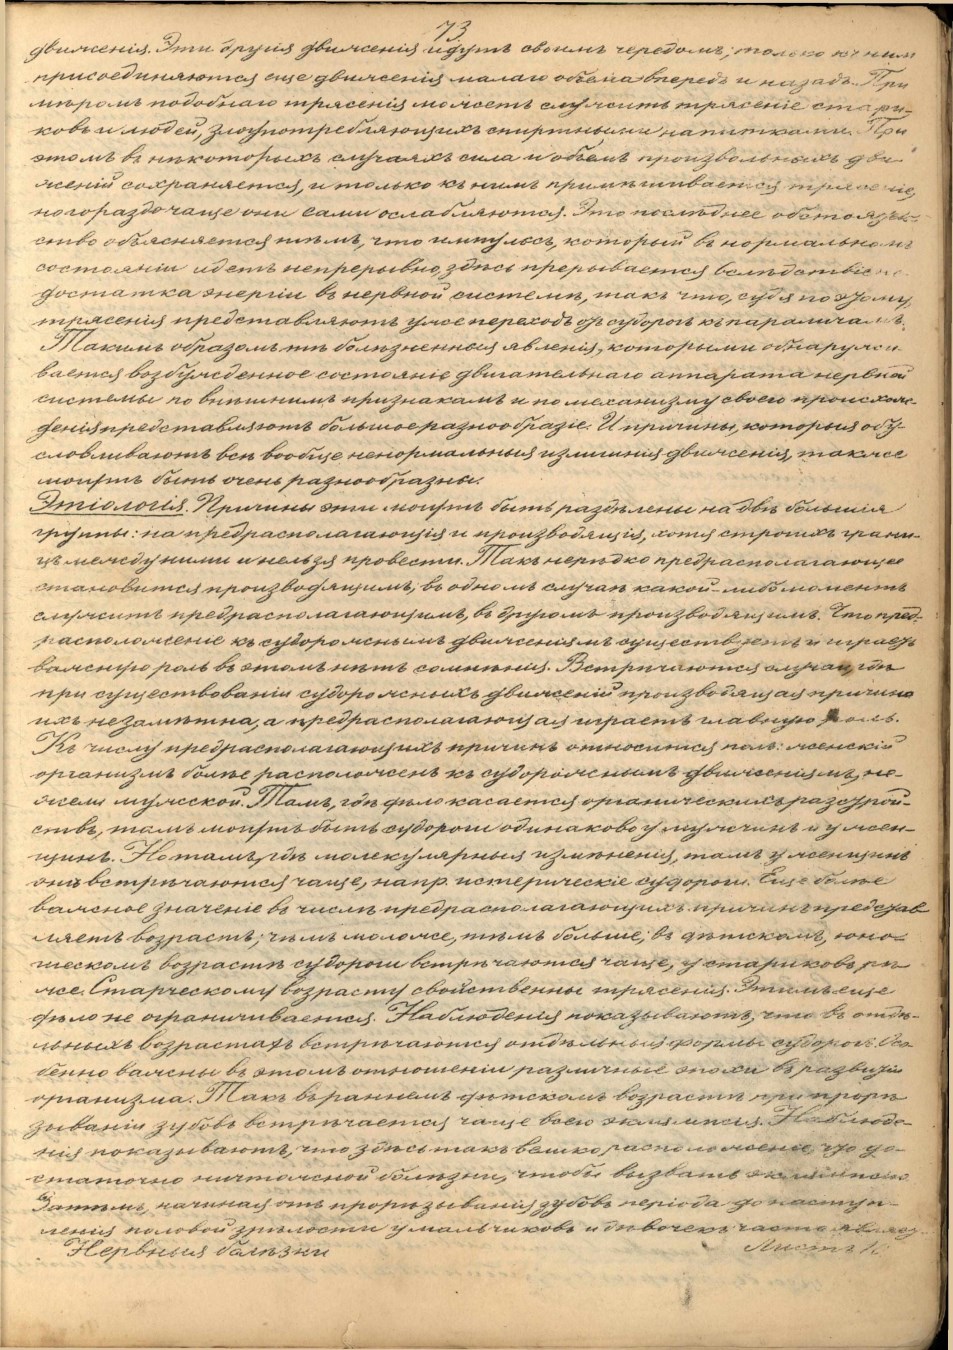 73.
движенія. Эти другія движенія идутъ своимъ чередомъ, только къ нимъ
присоединяются еще движенія малаго объема впередъ и назадъ. При
мѣромъ подобнаго трясенія можетъ служить трясеніе стари-
ковъ и людей, злоупотребляющихъ спиртными напитками. При
этомъ въ нѣкоторыхъ случаяхъ сила и объемъ произвольныхъ дви
женій сохраняется, и только къ нимъ примѣшивается трясеніе,
но гораздо чаще они сами ослабляются. Это послѣднее обстоятель-
ство объясняется тѣмъ, что импульсъ, который въ нормальномъ
состояніи идетъ непрерывно, здѣсь прерывается вслѣдствіе не
достатка энергіи въ нервной системѣ, такъ что, судя по этому,
трясенія представляютъ уже переходъ отъ судорогъ къ параличамъ.
Такимъ образомъ тѣ болѣзненныя явленія, которыми обнаружи
вается возбужденное состояніе двигательнаго аппарата нервной
системы по внѣшнимъ признакамъ и по механизму своего происхож-
денія представляютъ большое разнообразіе. И причины, которыя обу-
словливаютъ всѣ вообще ненормальныя измѣненія движенія, также
могутъ быть очень разнообразны.
Этіологія. Причины эти могутъ быть раздѣлены на двѣ большія
группы: на предрасполагающія и производящія, хотя строгихъ грани-
цъ между ними и нельзя провести. Такъ нерѣдко предрасполагающее
становится производящимъ, въ одномъ случаѣ какой-либо моментъ
служитъ предрасполагающимъ, въ другомъ производящимъ. Что пред-
расположеніе къ судорожнымъ движеніямъ существуетъ и играетъ
важную роль въ этомъ нѣтъ сомнѣнія. Встрѣчаются случаи, гдѣ
при существованіи судорожныхъ движеній производящая причина
ихъ незамѣтна, а предрасполагающая играетъ главную роль.
Къ числу предрасполагающихъ причинъ относится полъ: женскій
организмъ болѣе расположенъ къ судорожнымъ движеніямъ, не-
жели мужской. Тамъ, гдѣ дѣло касается органическихъ разстрой-
ствъ, тамъ могутъ быть судороги одинаково у мужчинъ и у жен-
щинъ. Но тамъ, гдѣ молекулярныя измѣненія, тамъ у женщинъ
онѣ встрѣчаются чаще, напр. истерическіе судороги. Еще болѣе
важное значеніе въ числѣ предрасполагающихъ причинъ представ
ляетъ возрастъ; чѣмъ моложе, тѣмъ больше; въ дѣтскомъ, юно-
шескомъ возрастѣ судороги встрѣчаются чаще, у стариковъ рѣ
же. Старческому возрасту свойственны трясенія. Этимъ еще
дѣло не ограничивается. Наблюденія показываютъ, что въ отдѣ-
льныхъ возрастахъ встрѣчаются отдѣльныя формы судорогъ. Осо
бенно важны въ этомъ отношеніи различные эпохи въ развитіи
организма. Такъ въ раннемъ дѣтскомъ возрастѣ при прорѣ
зываніи зубовъ встрѣчается чаще всего эклямпсія. Наблюде-
нія показываютъ, что здѣсь такъ велико расположеніе, что до-
статочно ничтожной болѣзни, чтобы вызвать эклямпсію.
Затѣмъ, начиная отъ прорѣзыванія зубовъ періода до наступ-
ленія половой зрѣлости у мальчиковъ и дѣвочекъ часто являю-
Нервныя болѣзни Листъ